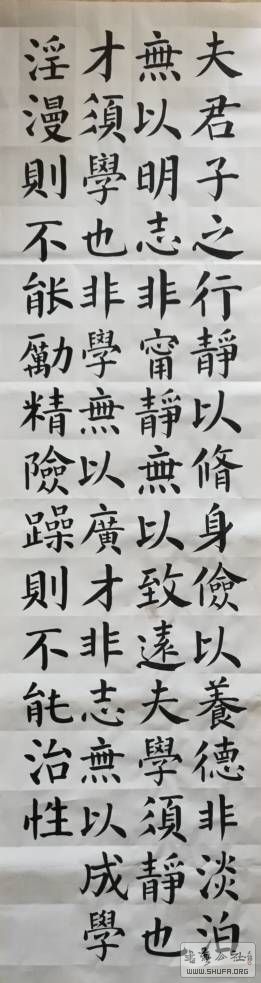 夫君子之行靜以脩身儉以養德非淡泊
無以明志非甯靜無以致遠夫學須靜也
才須學也非學無以廣才非志無以成學
淫漫則不能勵精險躁則不能治性
WWW.SHUFA.ORG